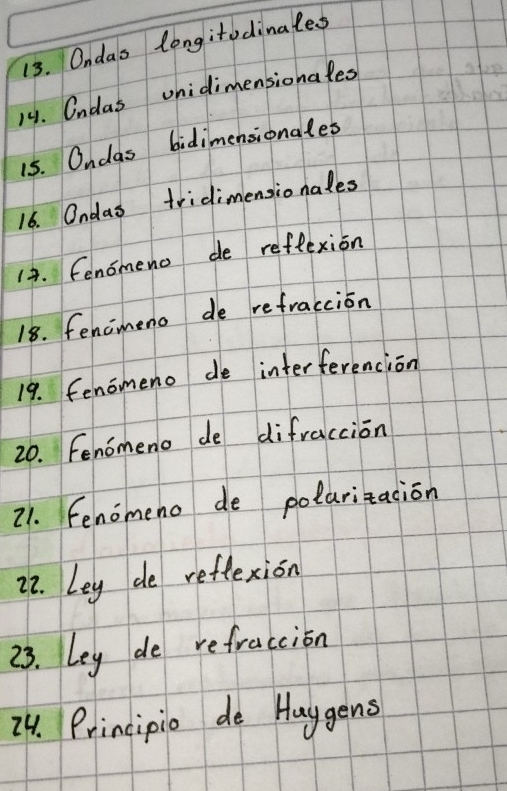 13. Ondas longitudinales
14. Ondas unidimensionales
15. Ondas bidimensionales
16. Ondas tridimensionales
17. Fenómeno de reflexión
18. Fenómeno de refracción
19. Fenómeno de interferención
20. Fenómeno de difracción
21. Fenómeno de polarización
22. Ley de reflexión
23. Ley de refracción
24. Principio de Huygens